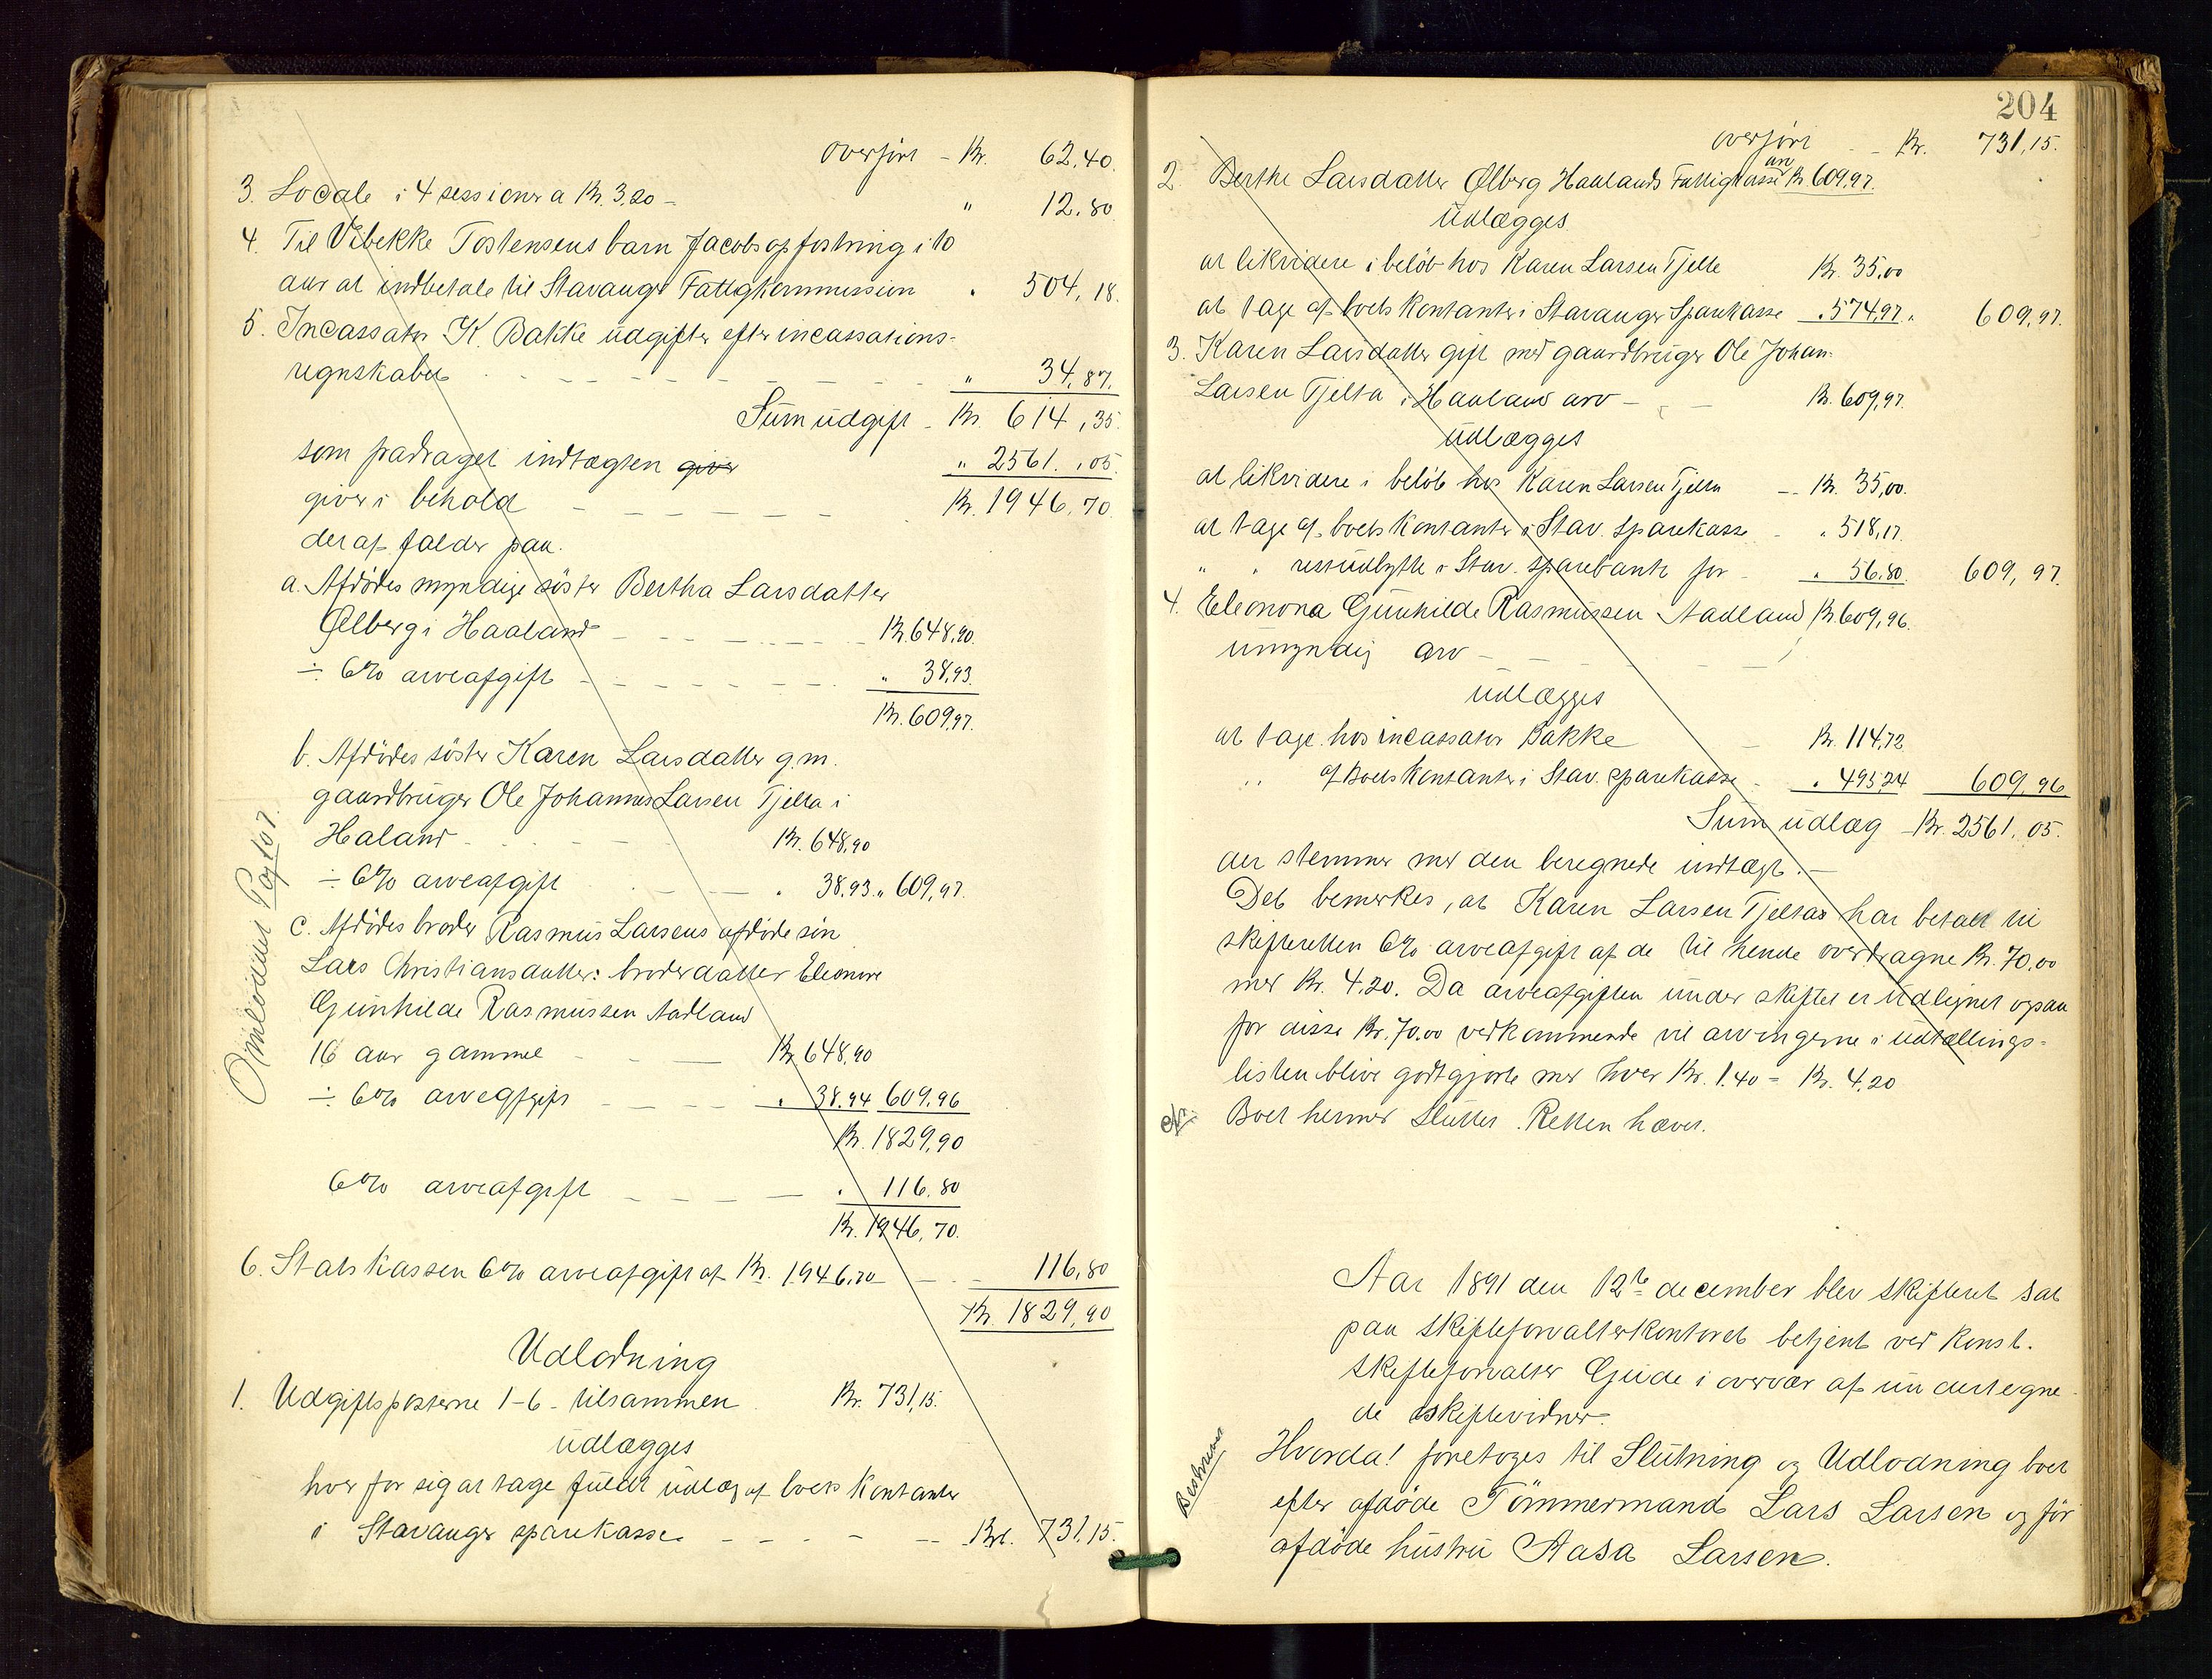 overført - Kr. 62.40.
3. Locale i 4 sessioner a Kr. 3.20 - " 12.80
4. Til Vibekke Tostensens barn Jacobs opfostring i 10
aar at indbetale til Stavanger Fattigkommission " 504,18.
5. Incassator K. Bakke udgifter efter incassations-
regnskabet " 34,87.
Sum udgift - Kr. 614,35.
som fradraget indtægten giver
" 2561.,05.
giver i behold Kr. 1946,70.
deraf falder paa.
a. Afdødes myndige søster Bertha Larsdatter
Ølberg i Haaland Kr. 648,90.
÷ 6% arveafgift " 38,93.
Kr. 609,97.
b. Afdødes søster Karen Larsdatter g.m.
gaardbruger Ole Johannes Larsen Tjelta i
Haland Kr. 648,90
÷ 6% arveafgift " 38.93 " 609,97.
c. Afdødes broder Rasmus Larsens afdøde søn
Lars Christians datter: broderdatter Eleonore
Gunhilde Rasmussen Aadland
16 aar gammel Kr. 648,90
÷ 6% arveafgift " 38.94 609,96
Kr. 1829,90
6% arveafgift " 116.80
Kr. 1946,70.
6. Statskassen 6% arveafgift af Kr. 1946,70 116,80
Kr. 1829,90
Udlodning
1. Udgiftsposterne 1-6 - tilsammen Kr. 731,15.
udlægges
hver for sig at tage fuldt udlæg af boets Kontanter
i Stavanger sparekasse Kr. 731,15.
204
overført - Kr. 731,15.
arv
2. Berthe Larsdatter Ølberg Haalands Fattigkasse Kr. 609,97.
Udlægges
at likvidere i beløb hos Karen Larsen Tjelte Kr. 35,00
at tage af boets Kontanter i Stavanger Sparekasse " 574,97 " 609,97.
3. Karen Larsdatter gift med gaardbruger Ole Johan-
Larsen Tjelta i Haaland arv - Kr. 609,97.
udlægges
at likvidere i beløb hos Karen Larsen Tjelta - Kr. 35,00.
at tage af boets Kontanter i Stav. Sparekasse " 518,17
" " restudbytte i Stav. Sparebank for " 56.80. 609,97.
4. Eleonora Gunhilde Rasmussen Aadland Kr. 609,96.
umyndig arv -
udlægges
at tage hos incassator Bakke Kr. 114,72
" af Boets Kontanter i Stav. sparekasse " 495,24 609,96
Sum udlæg - Kr. 2561,05.
der stemmer med den beregnede indtægt. -
Det bemerkes, at Karen Larsen Tjelta har betalt til
skifteretten 6% arveafgift af de til hende overdragne Kr. 70,00
med Kr. 4.20. Da arveafgiften under skiftet er udlignet ogsaa
for disse Kr. 70.00 vedkommende vil arvingerne i udtællings-
listen blive godtgjorte med hver Kr. 1.40 = Kr. 4.20
Boet hermed Sluttet. Retten hævet.
Aar 1891 den 12te december blev skifteret sat
paa skifteforvalterkontoret betjent ved konst.
skifteforvalter Gude i overvær af undertegne-
de skiftevidner.
Hvorda! foretoges til Slutning og Udlodning boet
efter afdøde Tømmermand Lars Larsen og før
afdøde hustru Aasa Larsen.